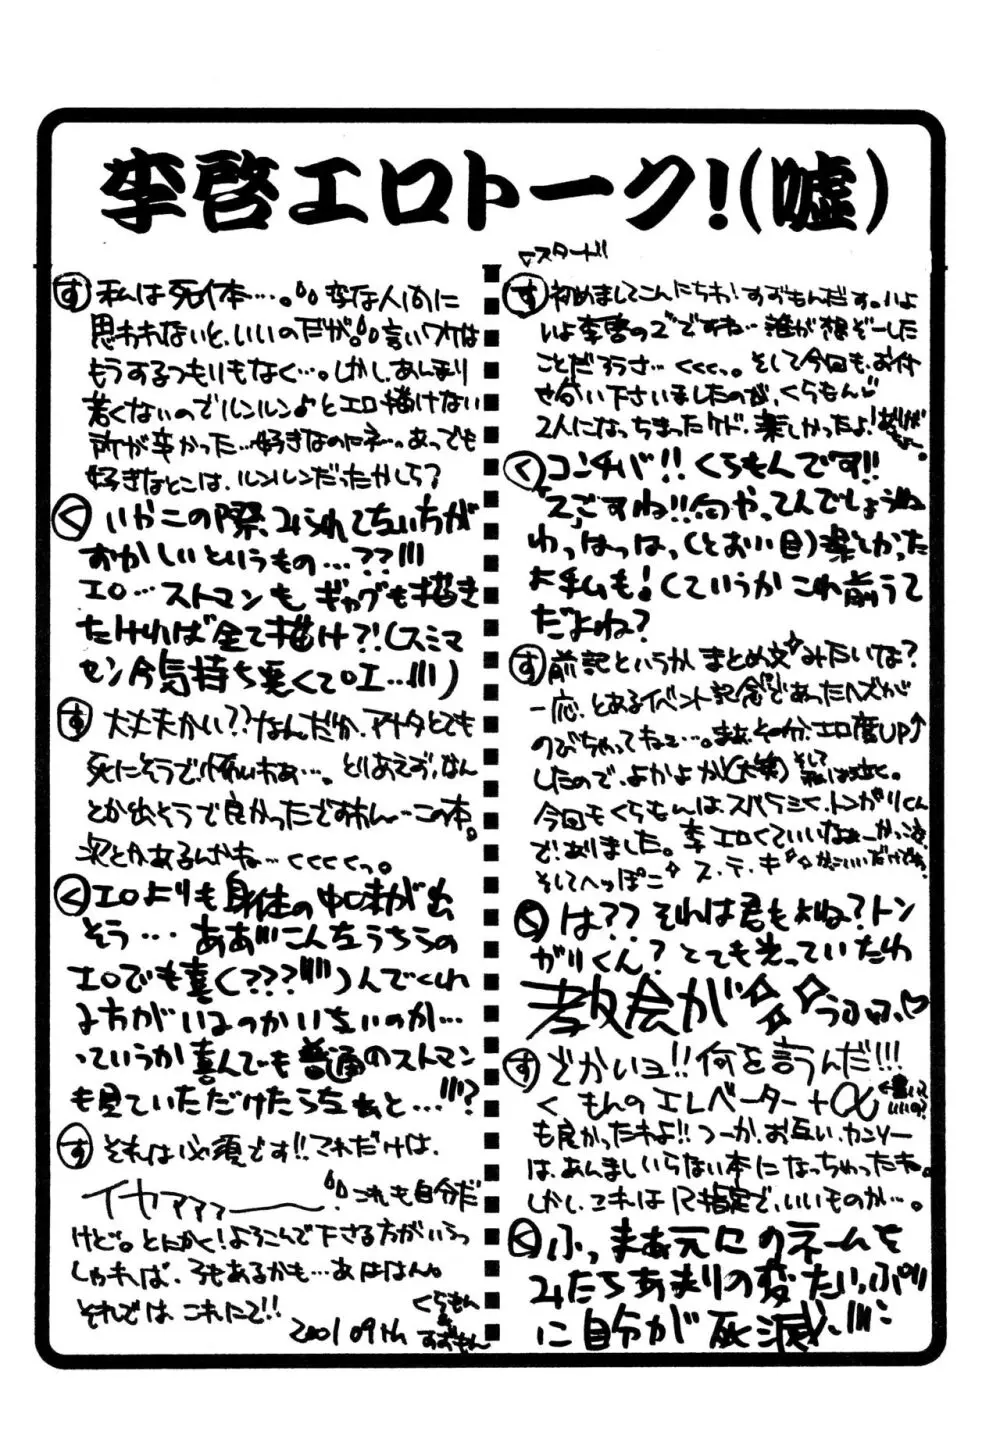 李啓エロトーク!(嘘)
▽スタート!!
す 初めましてこんにちわ!すずもんだす。いよ
いよ李啓の2ですね…誰が想ぞーした
ことだろうさ…くくくっ。そして今回も、お付
せ合い下さいましたのが、くらもん♡
2人になっちまったケド、楽しかったよ!
く コンチバ!!くらもんです!!
「2」ごすね!!何やってんでしょうね
わっはっはっ(とおい目)楽しかった
よ私も!(ていうかこれ前うて
だよね?
す 前記というかまとめ文みたいな?
一応、とあるイベント記念であったハズが
のびちゃってねぇ…。まぁ、その分、エロ度UP↑
したので、よかよか!(大笑)そして私は泣く。
今回もくらもんは、スバラシく、トンガリくん
で、ありました。李エロくていいなぁーかっこ
そしてへっぽこ ス・テ・キ かっこいいだけです
く は??それは君もよね?トン
ガリくん?とても光っていたわ
教会が うふふ♡
す どかいヨ!!何を言うんだ!!!
くらもんのエレベーター+α
も良かったわよ!!つーか、お互い、カンソー
は、あんましいらない本になっちゃったね。
しかし、これは12指定で、いいものか…。
く ふっ、まぁ元にのネームを
みたらあまりの変たいっぷり
に自分が死滅、!!!
す 私は死体…。変な人間に
思われないと、いいのだが。言いワケは
もうするつもりもなく…。しかし、あんまり
若くないのでルンルン♪とエロ描けない
所が辛かった…好きなのにネ…あっでも
好きなとこは、ルンルンだったかしら?
く いやこの際、みられてないちが
おかしいというもの…??!!!
エロ…ストマンもギャグも描き
たければ全て描け?!(スミマ
セン今気持ち悪くてロエ…!!!)
す 大丈夫かい??なんだか、アナタとても
死にそうで怖いわぁ…。とりあえず、なん
とか出そうで良かったですわん…この本。
次とかあるんかね…くくくくっ。
く エロよりも身体の中味が出
そう…ああ!!こんなうちらの
エロでも喜(???!!!)んでくれ
る方がいるのかいないのか…
っていうか喜んでも普通のストマン
も見ていただけたらなぁと…!!!?
す それは必須です!!これだけは、
イヤァァァー これも自分だ
けど。とにかく!よろこんで下さる方がいらっ
しゃれば、3もあるかも…あははん。
それでは、これにて!!
2001 09th
くらもん
&
すずもん